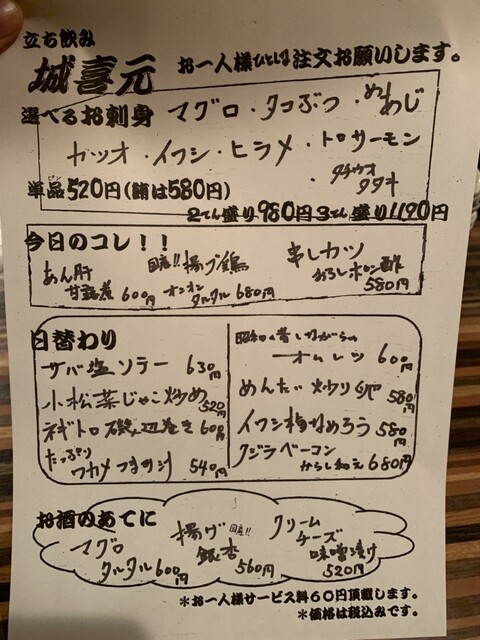 立ち飲み
城喜元 お一人様ひとしな注文お願いします。
選べるお刺身 マグロ・タコぶつ・あじ
カツオ・イワシ・ヒラメ・トロサーモン
・タチウオタタキ
単品520円(鮪は580円)
2てん盛り980円 3てん盛り1190円
今日のコレ！！
あん肝甘露煮600円
国産!!揚げ鶏オンオンタルタル680円
串しカツおろしポン酢580円
日替わり
サバ塩ソテー 630円
小松菜じゃこ炒め520円
ネギトロ磯辺巻き600円
たっぷりワカメつまみ汁 540円
昭和の昔しながらのオムレツ 600円
めんたい炒り 580円
イワシ梅なめろう580円
クジラベーコンからし和え680円
お酒のあてに
マグロタルタル600円
揚げ国産!!銀杏560円
クリームチーズ味噌漬け520円
*お一人様サービス料60円頂戴します。
*価格は税込みです。